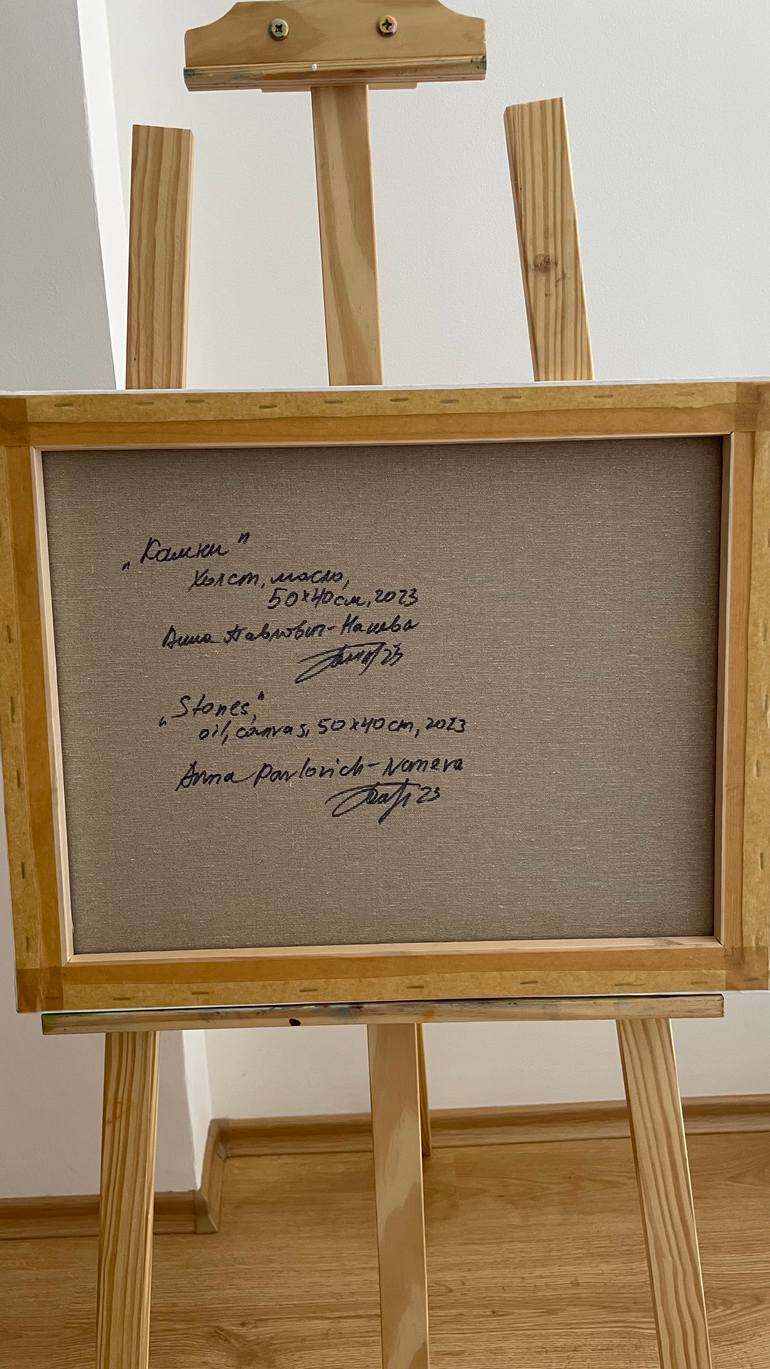 „Камни"
Холст, масло,
50x40см, 2023
Анна Павлович-Нанева
23
„Stones"
oil, canvas, 50x40cm, 2023
Anna Pavlovich-Naneva
23